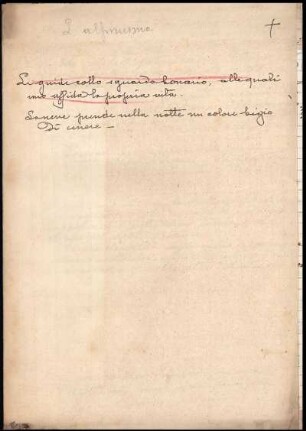 L'alpinismo
Le guide collo sguardo bonario, alle quali
uno affida la propria vita.
La neve prende nella notte un colore bigio
di cenere –